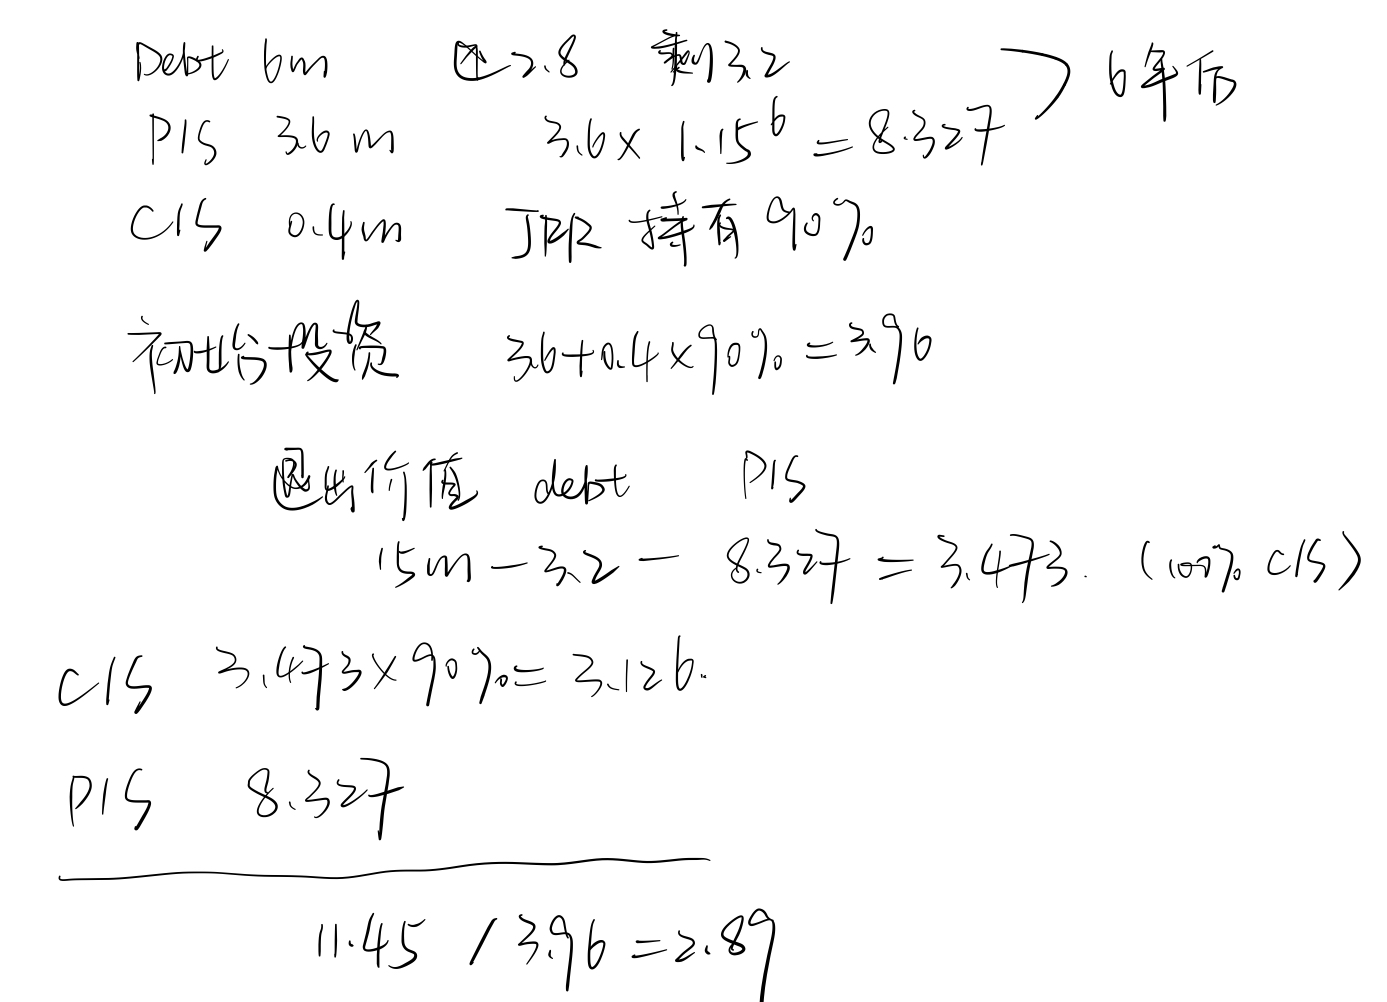 Debt 6m 还2.8 剩3.2
6年后
PIS 3.6m 3.6× 1.15⁶ = 8.327
CIS 0.4m JRR 持有90%
初始投资 3.6+0.4×90% = 3.96
退出价值 debt PIS
15m - 3.2 - 8.327 = 3.473. (100% CIS)
CIS 3.473×90% = 3.126.
PIS 8.327
11.45 / 3.96 = 2.89